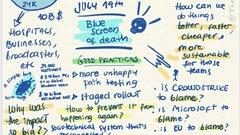 24K
10B$
HOSPITALS,
BUSINESSES,
BROADCASTERS,
etc
JULY 19th
Blue
screen
of death
GOOD PRACTICES
→ more unhappy
path testing
→ staged rollout
Why was
the impact
so big
How to prevent it from
happening again?
Sociotechnical system that's
How can we
do things
better, safer
cheaper,
more
sustainable
for those
teams
is CROWDSTRIKE
to blame?
is Microsoft to
blame?
is EU to blame?